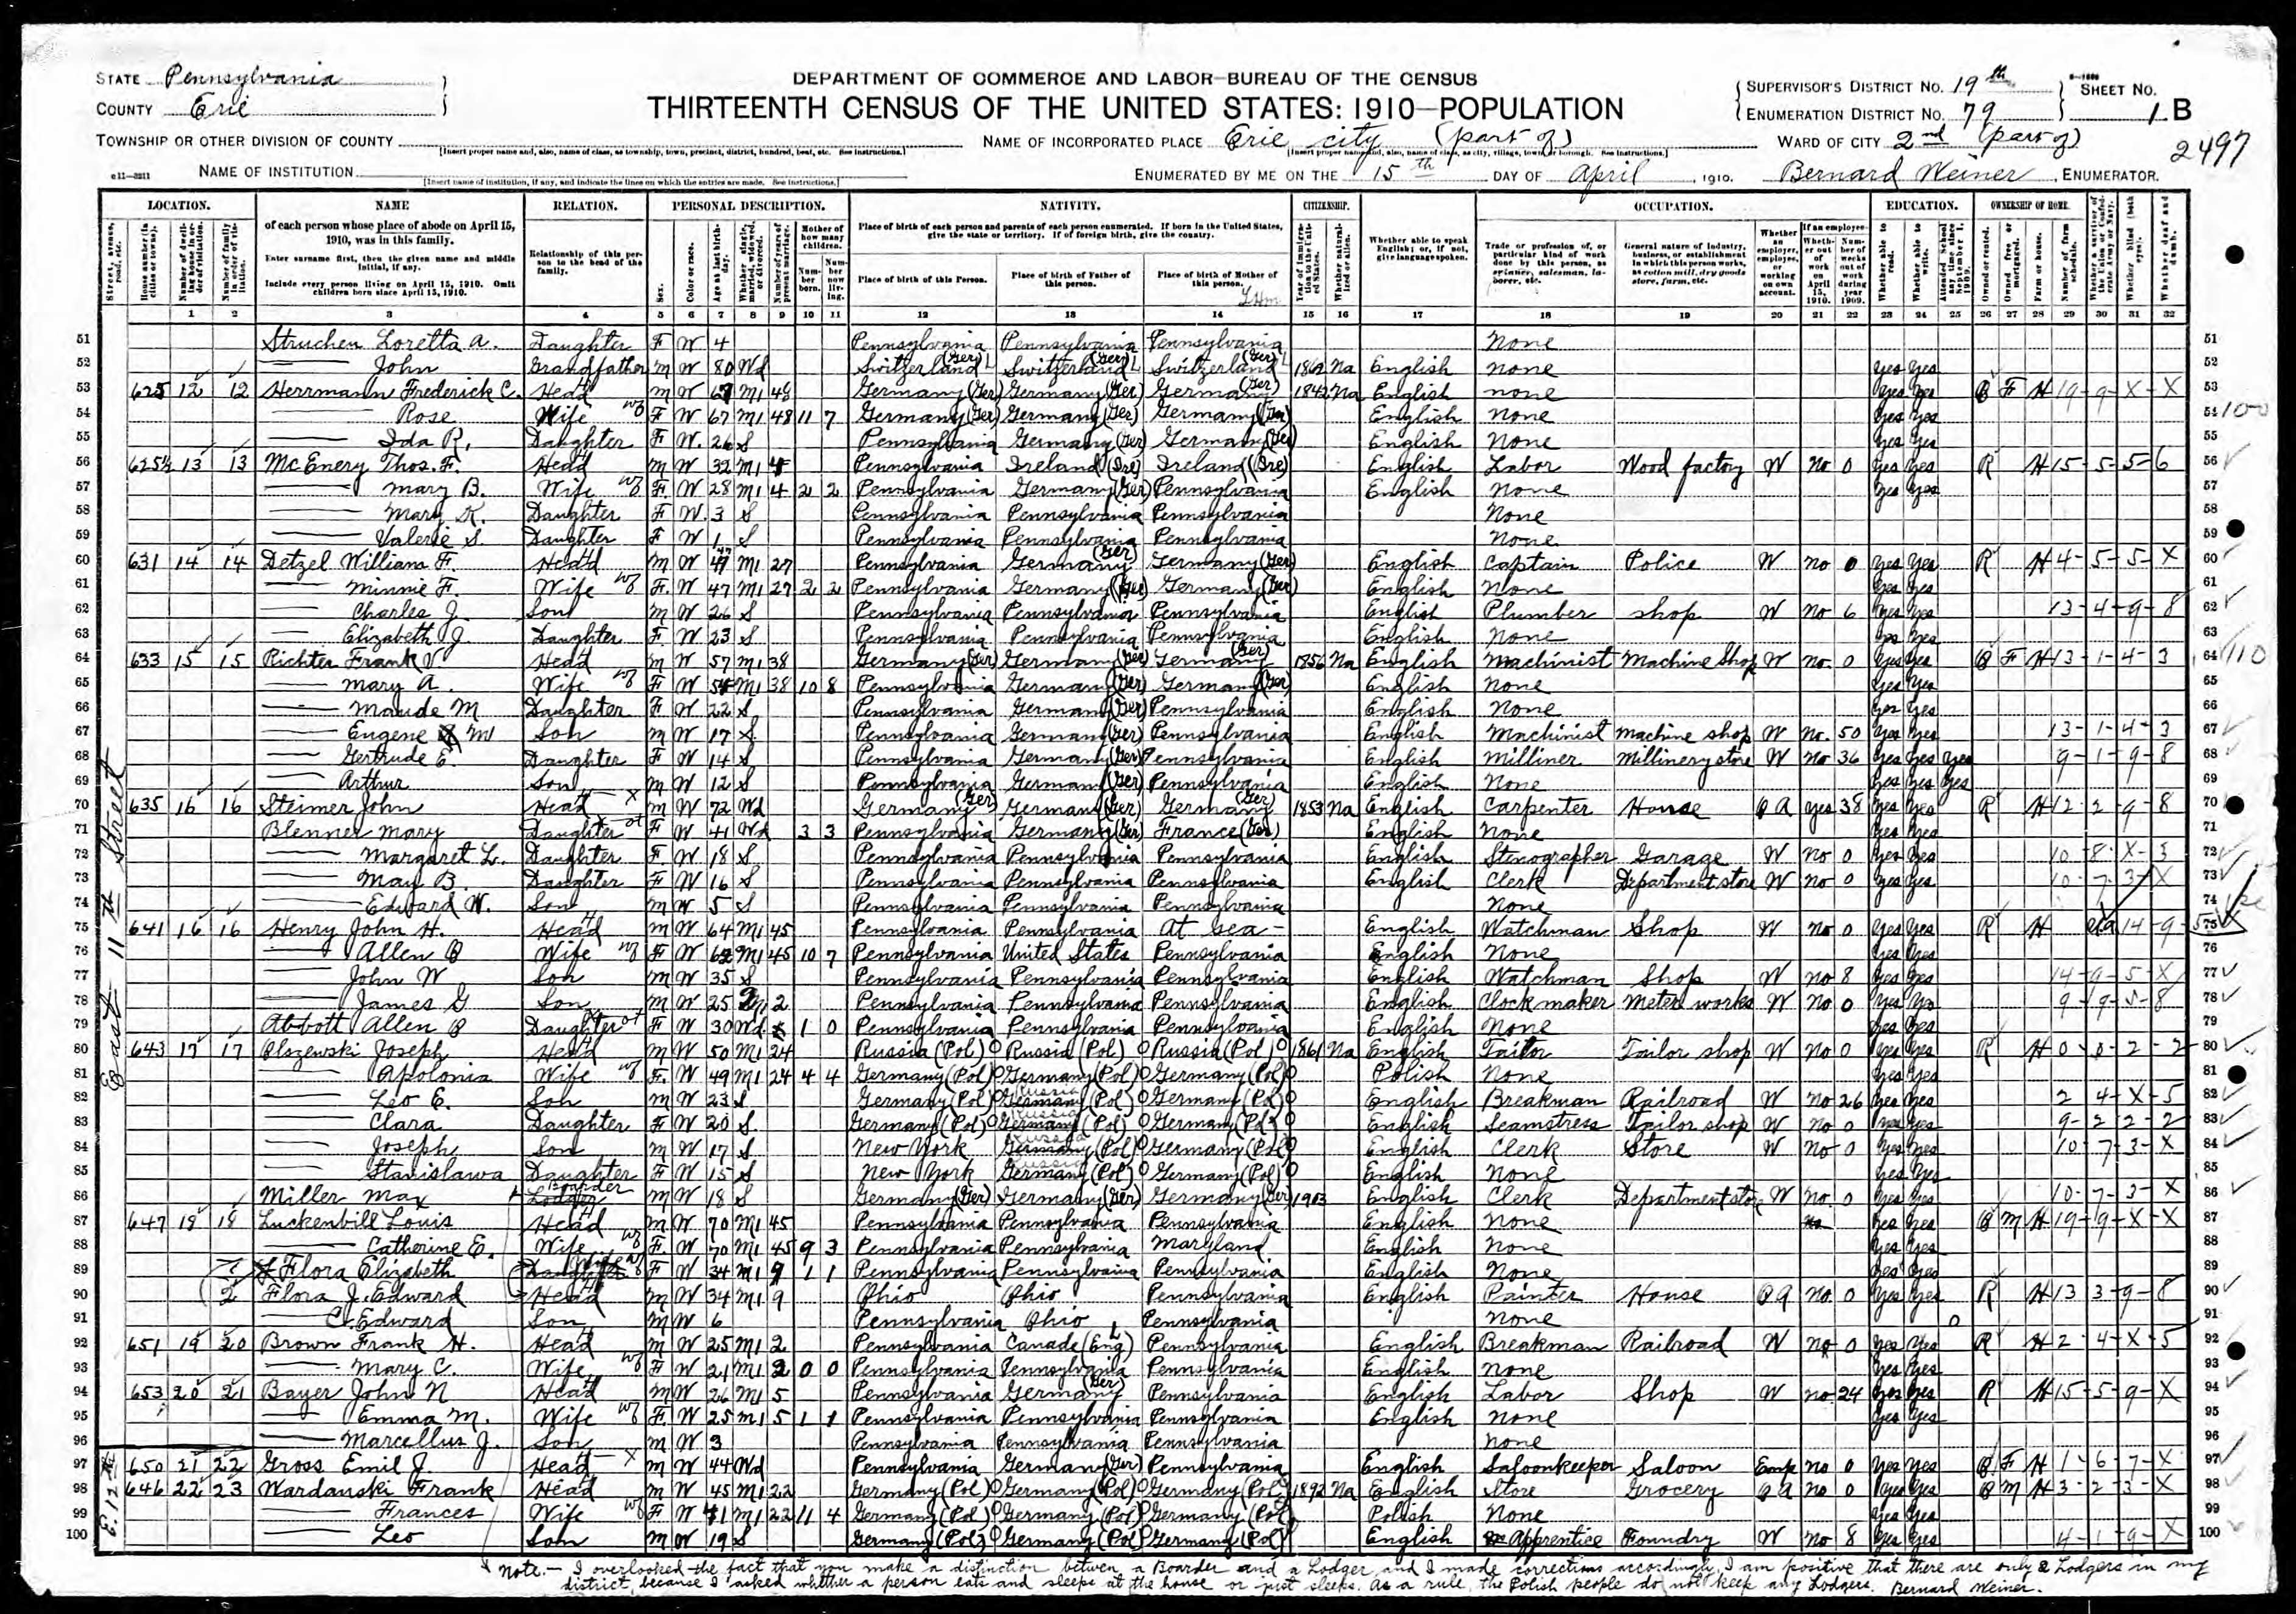 STATE Pennsylvania
COUNTY Erie
TOWNSHIP OR OTHER DIVISION OF COUNTY
[Insert proper name and, also, name of class, as township, town, precinct, district, hundred, beat, etc. See instructions.]
NAME OF INSTITUTION
[Insert name of institution, if any, and indicate the lines on which the entries are made. See instructions.]
DEPARTMENT OF COMMERCE AND LABOR—BUREAU OF THE CENSUS
THIRTEENTH CENSUS OF THE UNITED STATES: 1910—POPULATION
NAME OF INCORPORATED PLACE Erie city (part of)
ENUMERATED BY ME ON THE 15th DAY OF April, 1910. Bernard Weiner, ENUMERATOR.
SUPERVISOR'S DISTRICT No. 19th
ENUMERATION DISTRICT No. 79
SHEET No. 1 B
WARD OF CITY 2nd (part of)
2497
LOCATION. NAME RELATION. PERSONAL DESCRIPTION. NATIVITY. CITIZENSHIP. OCCUPATION. EDUCATION. OWNERSHIP OF HOME.
of each person whose place of abode on April 15, 1910, was in this family.
Enter surname first, then the given name and middle initial, if any.
Include every person living on April 15, 1910. Omit children born since April 15, 1910.
Relationship of this person to the head of the family.
Place of birth of each person and parents of each person enumerated. If born in the United States, give the state or territory. If of foreign birth, give the country.
Place of birth of this Person. Place of birth of Father of this person. Place of birth of Mother of this person.
Whether able to speak English; or, if not, give language spoken.
Trade or profession of, or particular kind of work done by this person, as spinner, salesman, laborer, etc.
General nature of industry, business, or establishment in which this person works, as cotton mill, dry goods store, farm, etc.
1 2 3 4 5 6 7 8 9 10 11 12 13 14 15 16 17 18 19 20 21 22 23 24 25 26 27 28 29 30 31 32
East 11th Street
51 Struchen Loretta A. Daughter F W 4 Pennsylvania Pennsylvania Pennsylvania None 51
52 John Grandfather M W 80 Wd Switzerland (Ger) Switzerland (Ger) Switzerland (Ger) 1862 Na English None Yes Yes 52
53 625 12 12 Herrmann Frederick C. Head M W M1 48 Germany (Ger) Germany (Ger) Germany (Ger) 1842 Na English None Yes Yes O F H 19-9-X-X 53
54 Rose Wife F W 67 M1 48 11 7 Germany (Ger) Germany (Ger) Germany (Ger) English None Yes Yes 54 100
55 Ida R. Daughter F W 26 S Pennsylvania Germany (Ger) Germany (Ger) English None Yes Yes 55
56 625½ 13 13 McEnery Thos. F. Head M W 32 M1 4 Pennsylvania Ireland (Ire) Ireland (Ire) English Labor Wood factory W No 0 Yes Yes R H 15-5-5-6 56
57 Mary B. Wife F W 28 M1 4 2 2 Pennsylvania Germany (Ger) Pennsylvania English None Yes Yes 57
58 Mary K. Daughter F W 3 S Pennsylvania Pennsylvania Pennsylvania None 58
59 Valerie S. Daughter F W 1 S Pennsylvania Pennsylvania Pennsylvania None 59
60 631 14 14 Detzel William F. Head M W 47 M1 27 Pennsylvania Germany (Ger) Germany (Ger) English Captain Police W No 0 Yes Yes R H 4-5-5-X 60
61 Minnie F. Wife F W 47 M1 27 2 2 Pennsylvania Germany (Ger) Germany (Ger) English None Yes Yes 61
62 Charles J. Son M W 26 S Pennsylvania Pennsylvania Pennsylvania English Plumber Shop W No 6 Yes Yes 13-4-9-8 62
63 Elizabeth J. Daughter F W 23 S Pennsylvania Pennsylvania Pennsylvania English None Yes Yes 63
64 633 15 15 Richter Frank V Head M W 57 M1 38 Germany (Ger) Germany (Ger) Germany (Ger) 1856 Na English Machinist Machine Shop W No 0 Yes Yes O F H 13-1-4-3 64 110
65 Mary A. Wife F W 54 M1 38 10 8 Pennsylvania Germany (Ger) Germany (Ger) English None Yes Yes 65
66 Maude M Daughter F W 22 S Pennsylvania Germany (Ger) Pennsylvania English None Yes Yes 66
67 Eugene M Son M W 17 S Pennsylvania Germany (Ger) Pennsylvania English Machinist Machine shop W No 50 Yes Yes 13-1-4-3 67
68 Gertrude E. Daughter F W 14 S Pennsylvania Germany (Ger) Pennsylvania English Milliner Millinery store W No 36 Yes Yes Yes 9-1-9-8 68
69 Arthur Son M W 12 S Pennsylvania Germany (Ger) Pennsylvania English None Yes Yes Yes 69
70 635 16 16 Steimer John Head M W 72 Wd Germany (Ger) Germany (Ger) Germany (Ger) 1853 Na English Carpenter House OA Yes 38 Yes Yes R H 12-2-9-8 70
71 Blenner Mary Daughter F W 41 Wd 3 3 Pennsylvania Germany (Ger) France (Ger) English None Yes Yes 71
72 Margaret L. Daughter F W 18 S Pennsylvania Pennsylvania Pennsylvania English Stenographer Garage W No 0 Yes Yes 10-8-X-3 72
73 May B. Daughter F W 16 S Pennsylvania Pennsylvania Pennsylvania English Clerk Department store W No 0 Yes Yes 10-7-3-X 73
74 Edward W. Son M W 5 S Pennsylvania Pennsylvania Pennsylvania None 74
75 641 16 16 Henry John H. Head M W 64 M1 45 Pennsylvania Pennsylvania At sea English Watchman Shop W No 0 Yes Yes R H UA 14-9-5-X 75
76 Allen B Wife F W 62 M1 45 10 7 Pennsylvania United States Pennsylvania English None Yes Yes 76
77 John W Son M W 35 S Pennsylvania Pennsylvania Pennsylvania English Watchman Shop W No 8 Yes Yes 14-9-5-X 77
78 James G Son M W 25 2 Pennsylvania Pennsylvania Pennsylvania English Clock maker Meter works W No 0 Yes Yes 9-9-5-8 78
79 Abbott Allen B Daughter F W 30 Wd 1 0 Pennsylvania Pennsylvania Pennsylvania English None Yes Yes 79
80 643 17 17 Olszewski Joseph Head M W 50 M1 24 Russia (Pol) Russia (Pol) Russia (Pol) 1861 Na English Tailor Tailor shop W No 0 Yes Yes R H 0-0-2-2 80
81 Apolonia Wife F W 49 M1 24 4 4 Germany (Pol) Germany (Pol) Germany (Pol) Polish None Yes Yes 81
82 Leo E. Son M W 23 S Germany (Pol) Germany Russia (Pol) Germany (Pol) English Breakman Railroad W No 26 Yes Yes 2 4-X-5 82
83 Clara Daughter F W 20 S Germany (Pol) Germany Russia (Pol) Germany (Pol) English Seamstress Tailor shop W No 0 Yes Yes 9-2-2-2 83
84 Joseph Son M W 17 S New York Germany Russia (Pol) Germany (Pol) English Clerk Store W No 0 Yes Yes 10-7-3-X 84
85 Stanislawa Daughter F W 15 S New York Germany Russia (Pol) Germany (Pol) English None Yes Yes 85
86 Miller Max Lodger Boarder M W 18 S Germany (Ger) Germany (Ger) Germany (Ger) 1903 English Clerk Department store W No 0 Yes Yes 10-7-3-X 86
87 647 18 18 Luckenbill Louis Head M W 70 M1 45 Pennsylvania Pennsylvania Pennsylvania English None Yes Yes O M H 19-9-X-X 87
88 Catherine E. Wife F W 70 M1 45 9 3 Pennsylvania Pennsylvania Maryland English None Yes Yes 88
89 Flora Elizabeth Daughter Wife F W 34 M1 9 1 1 Pennsylvania Pennsylvania Pennsylvania English None Yes Yes 89
90 2 Flora J. Edward Head M W 34 M1 9 Ohio Ohio Pennsylvania English Painter House OA No 0 Yes Yes R H 13 3-9-8 90
91 C. Edward Son M W 6 Pennsylvania Ohio Pennsylvania None 91
92 651 19 20 Brown Frank H. Head M W 25 M1 2 Pennsylvania Canada (Eng) Pennsylvania English Breakman Railroad W No 0 Yes Yes R H 2-4-X-5 92
93 Mary C. Wife F W 21 M1 2 0 0 Pennsylvania Pennsylvania Pennsylvania English None Yes Yes 93
94 653 20 21 Bayer John N Head M W 26 M1 5 Pennsylvania Germany (Ger) Pennsylvania English Labor Shop W No 24 Yes Yes R H 15-5-9-X 94
95 Emma M. Wife F W 25 M1 5 1 1 Pennsylvania Pennsylvania Pennsylvania English None Yes Yes 95
96 Marcellus J. Son M W 3 Pennsylvania Pennsylvania Pennsylvania None 96
E. 12th
97 650 21 22 Gross Emil J. Head M W 44 Wd Pennsylvania Germany (Ger) Pennsylvania English Saloonkeeper Saloon Emp No 0 Yes Yes O F H 1-6-7-X 97
98 646 22 23 Wardanski Frank Head M W 45 M1 22 Germany (Pol) Germany (Pol) Germany (Pol) 1892 Na English Store Grocery OA No 0 Yes Yes O M H 3-2-3-X 98
99 Frances Wife F W 41 M1 22 11 4 Germany (Pol) Germany (Pol) Germany (Pol) Polish None Yes Yes 99
100 Leo Son M W 19 S Germany (Pol) Germany (Pol) Germany (Pol) English Apprentice Foundry W No 8 Yes Yes 4-1-9-X 100
Note.— I overlooked the fact that you make a distinction between a Boarder and a Lodger, and I made corrections accordingly. I am positive that there are only 2 Lodgers in my
district, because I asked whether a person eats and sleeps at the house or just sleeps. As a rule, the Polish people do not keep any Lodgers. Bernard Weiner.